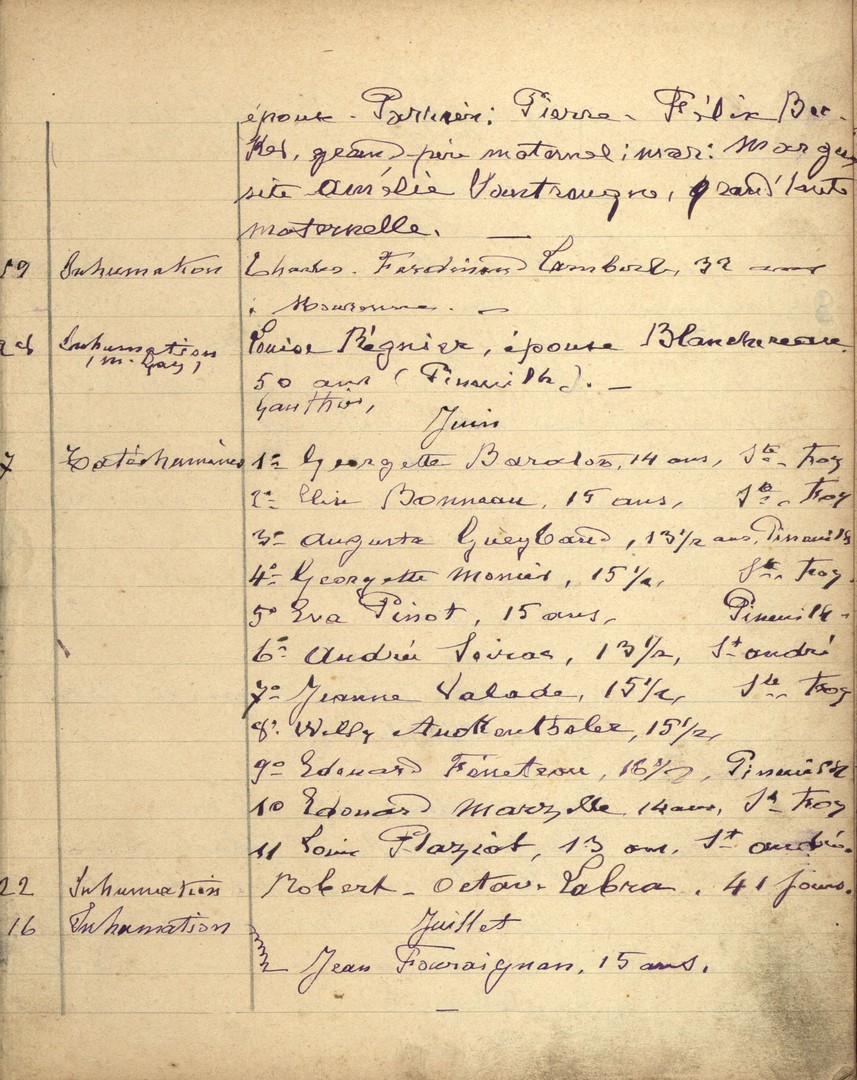 épouse - Parrain: Pierre - Félix Buc-
Kes, grand-père maternel; mar: Margue
rite Amélie Vautrougne, grand'tante
maternelle. —
59 Inhumation Charles - Ferdinand Lambert, 32 ans
à —
28 Inhumation Louise Régnier, épouse Blanchereau
(M. Gay) 50 ans (Pineuilh). —
Gauthier,
Juin
7 Catéchumènes 1º Georgette Baraton, 14 ans, Ste- Foy
2º Elise Bonneau, 15 ans, Ste- Foy
3º Augusta Gueybaud, 13 1/2 ans, Pineuilh
4º Georgette Monier, 15 1/2, Ste- Foy.
5º Eva Pinot, 15 ans, Pineuilh -
6º Andrée Seirac, 13 1/2, St André
7º Jeanne Valade, 15 1/2, Ste- Foy
8º Willy 15 1/2,
9º Edouard Féneteau, 16 1/2, Pineuilh
10 Edouard Marzelle 14 ans, Ste Foy
11 Louis Plaziot, 13 ans, St André.
22 Inhumation Robert - Octave Labra, 41 jours.
Juillet
16 Inhumation Jean Fouraignan, 15 ans.
—